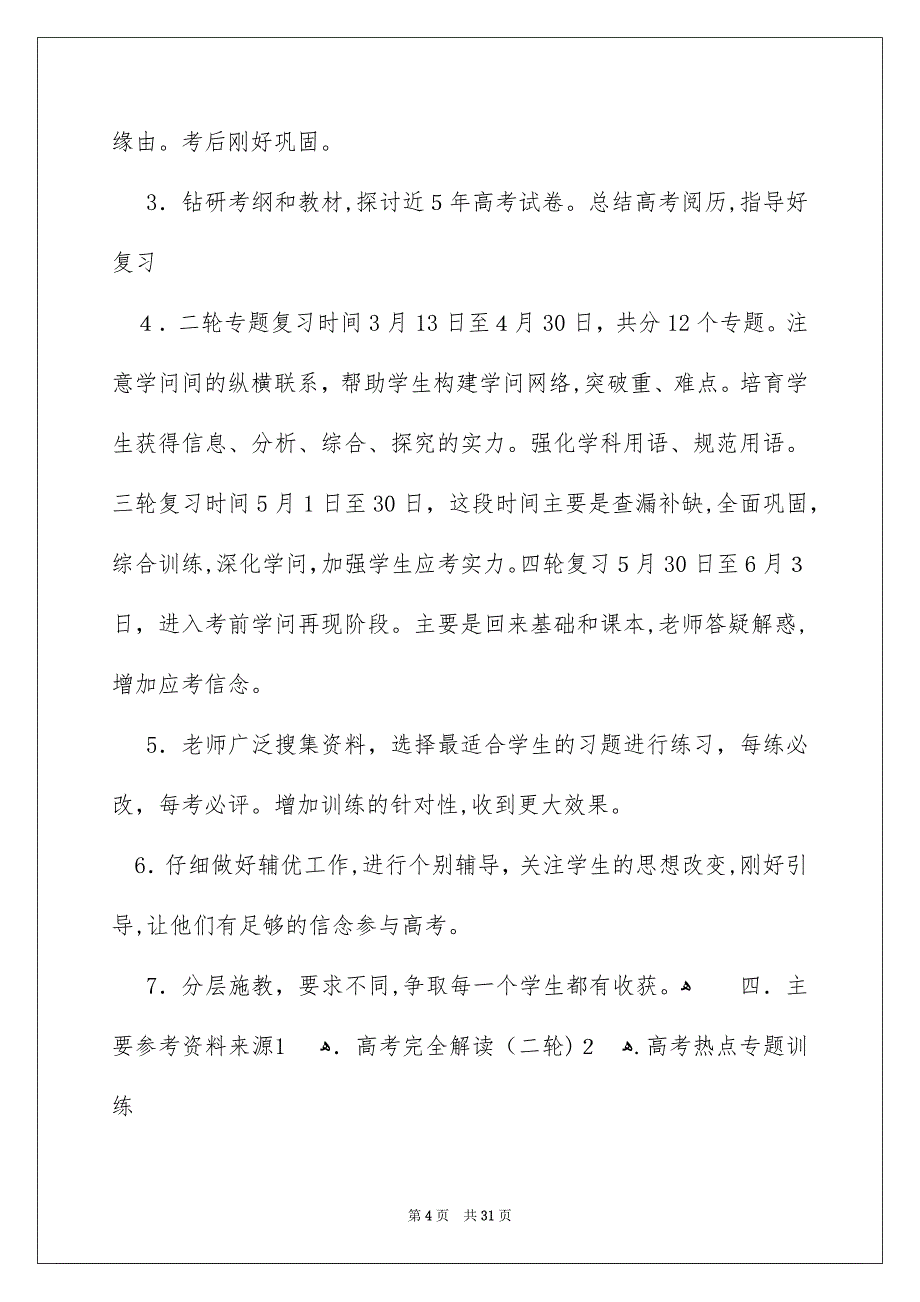 缘由。考后刚好巩固。
3．钻研考纲和教材,探讨近5年高考试卷。总结高考阅历,指导好
复习
4．二轮专题复习时间3月13日至4月30日，共分12个专题。注
意学问间的纵横联系，帮助学生构建学问网络,突破重、难点。培育学
生获得信息、分析、综合、探究的实力。强化学科用语、规范用语。
三轮复习时间5月1日至30日，这段时间主要是查漏补缺,全面巩固，
综合训练,深化学问，加强学生应考实力。四轮复习5月30日至6月3
日，进入考前学问再现阶段。主要是回来基础和课本,老师答疑解惑，
增加应考信念。
5．老师广泛搜集资料，选择最适合学生的习题进行练习，每练必
改，每考必评。增加训练的针对性,收到更大效果。
6．仔细做好辅优工作,进行个别辅导，关注学生的思想改变,刚好引
导,让他们有足够的信念参与高考。
7．分层施教，要求不同,争取每一个学生都有收获。ﻫ 四．主
要参考资料来源1 ﻫ．高考完全解读（二轮) 2 ﻫ.高考热点专题训
练
第4页 共31页